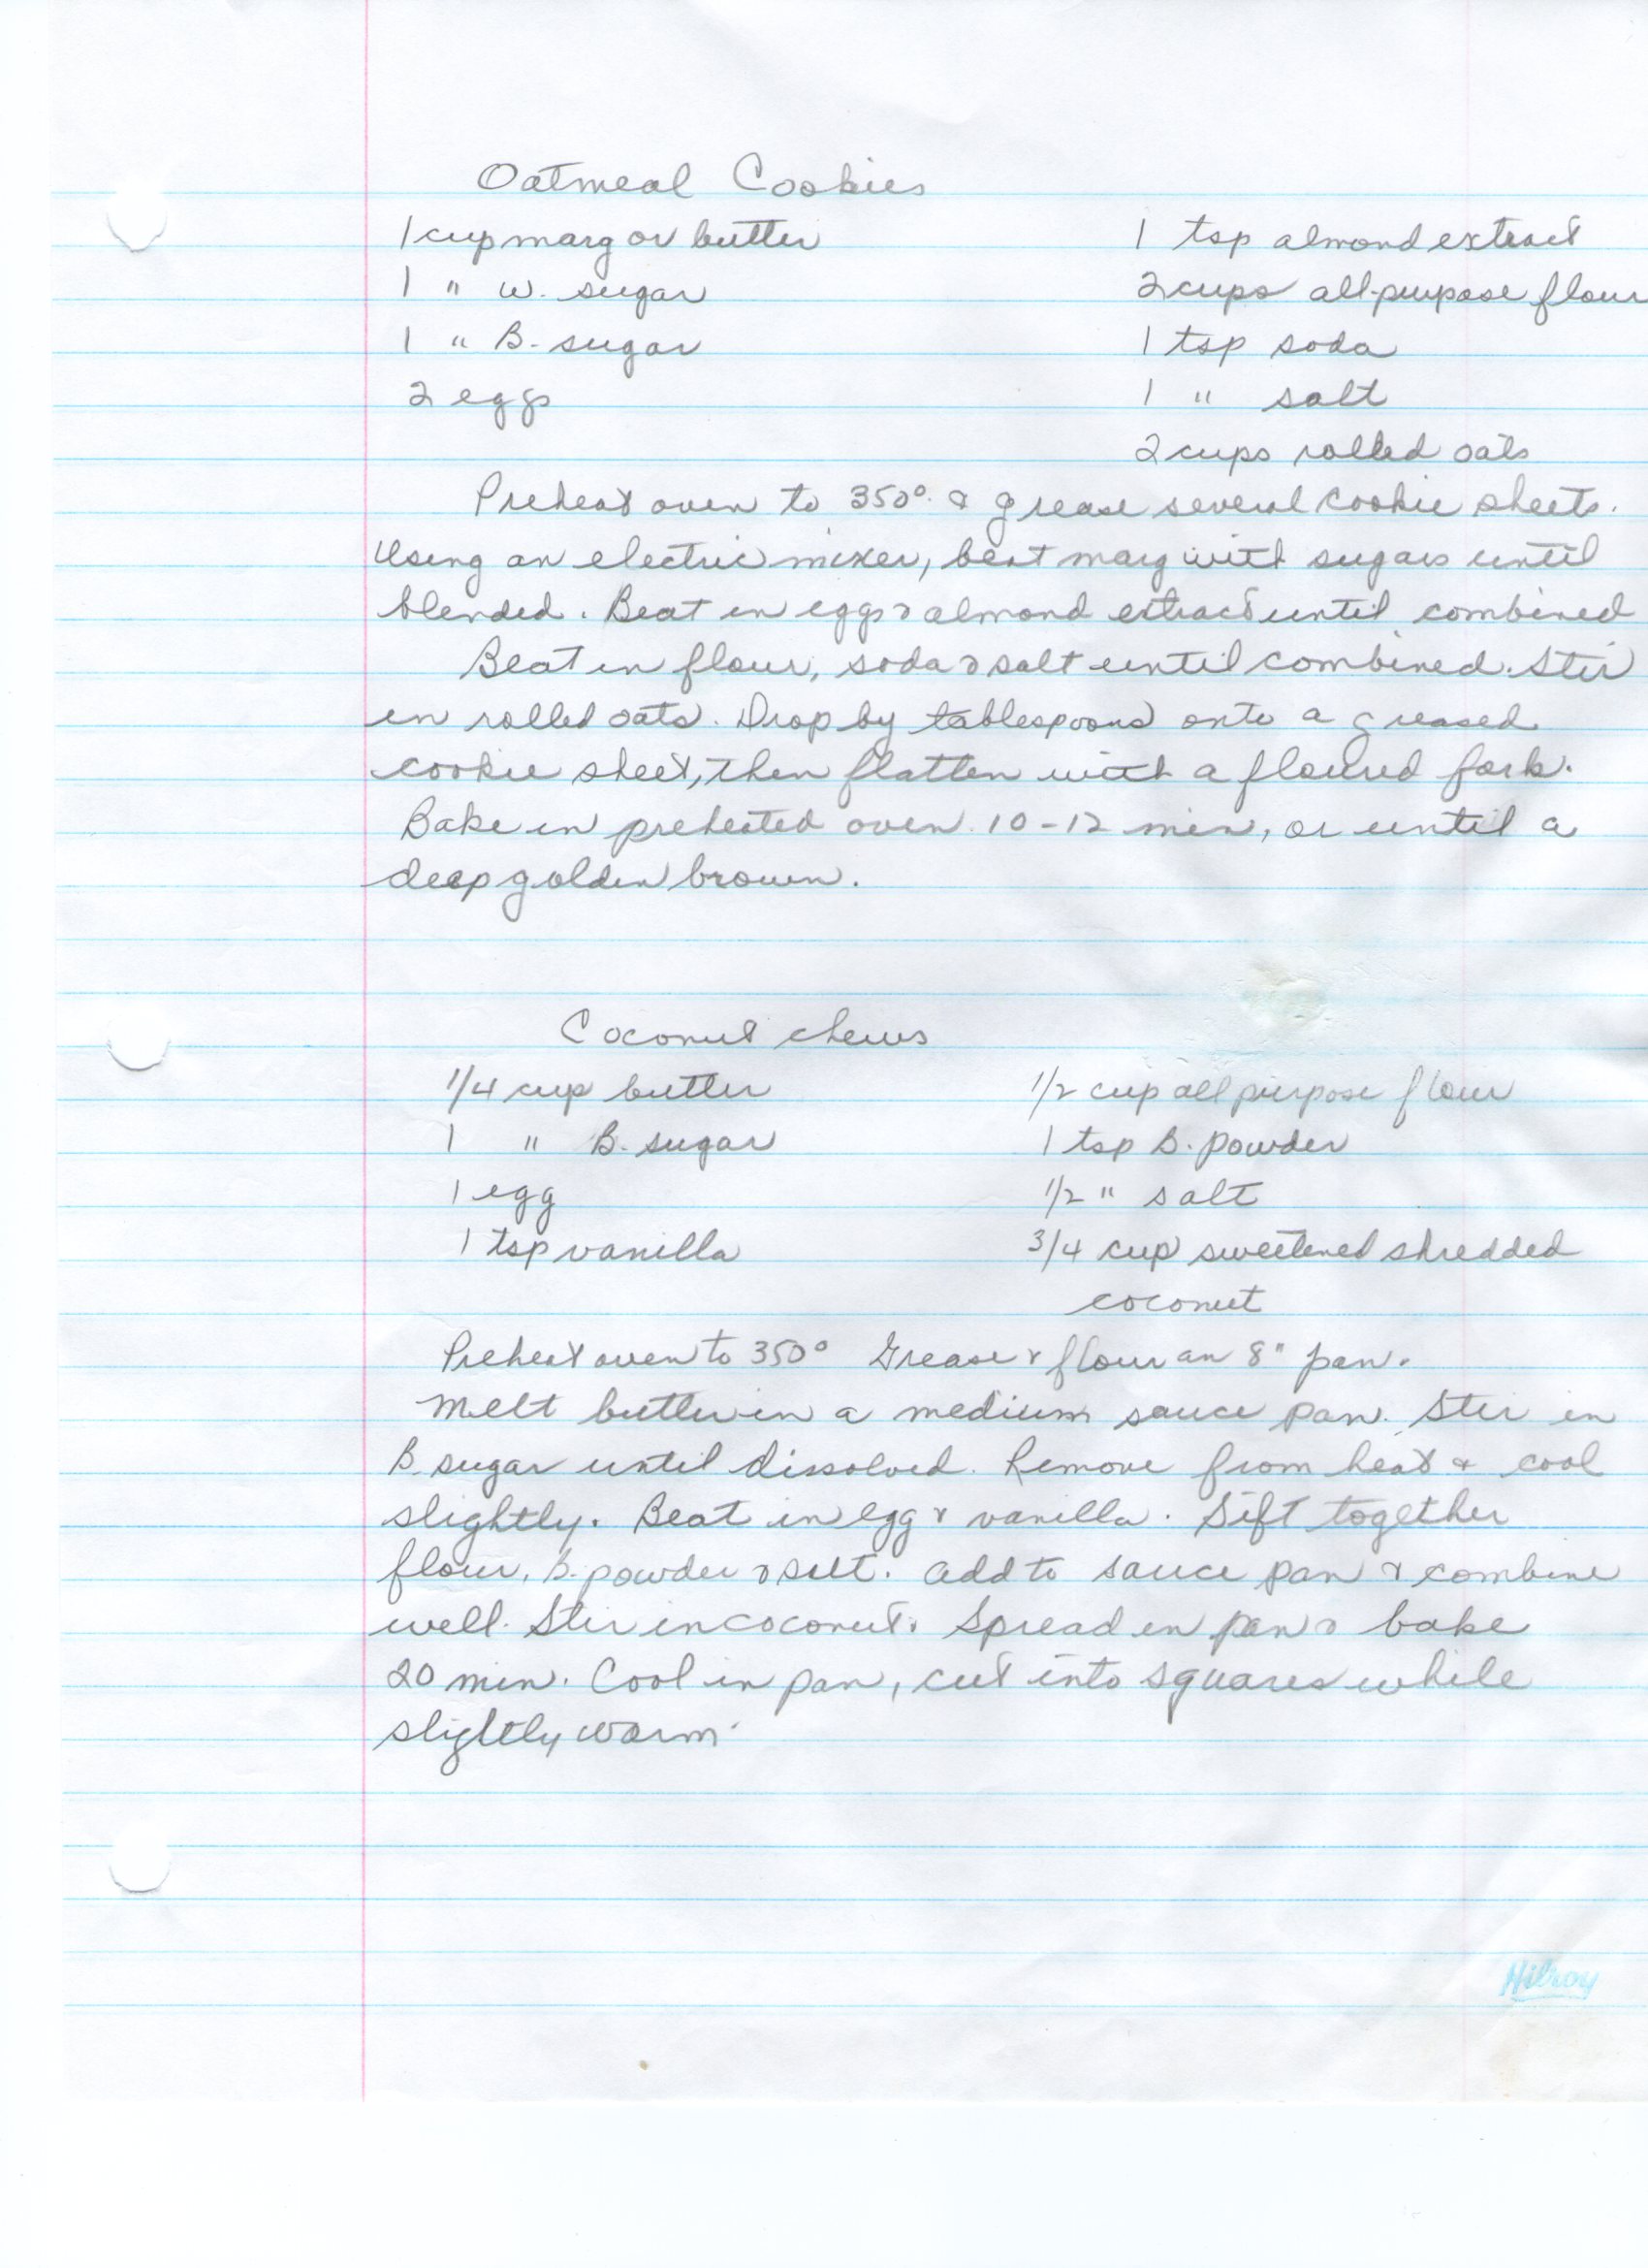 Oatmeal Cookies
1 cup marg or butter 1 tsp almond extract
1 " w. sugar 2 cups all-purpose flour
1 " B. sugar 1 tsp soda
2 eggs 1 " salt
2 cups rolled oats
Preheat oven to 350° & grease several cookie sheets.
Using an electric mixer, beat marg with sugars until
blended. Beat in eggs & almond extract until combined
Beat in flour, soda & salt until combined. Stir
in rolled oats. Drop by tablespoons onto a greased
cookie sheet, then flatten with a floured fork.
Bake in preheated oven 10-12 min, or until a
deep golden brown.
Coconut chews
1/4 cup butter 1/2 cup all purpose flour
1 " B. sugar 1 tsp B. powder
1 egg 1/2 " salt
1 tsp vanilla 3/4 cup sweetened shredded
coconut
Preheat oven to 350° Grease & flour an 8" pan.
Melt butter in a medium sauce pan. Stir in
B. sugar until dissolved. Remove from heat & cool
slightly. Beat in egg & vanilla. Sift together
flour, B. powder & salt. Add to sauce pan & combine
well. Stir in coconut. Spread in pan & bake
20 min. Cool in pan, cut into squares while
slightly warm.
Hilroy